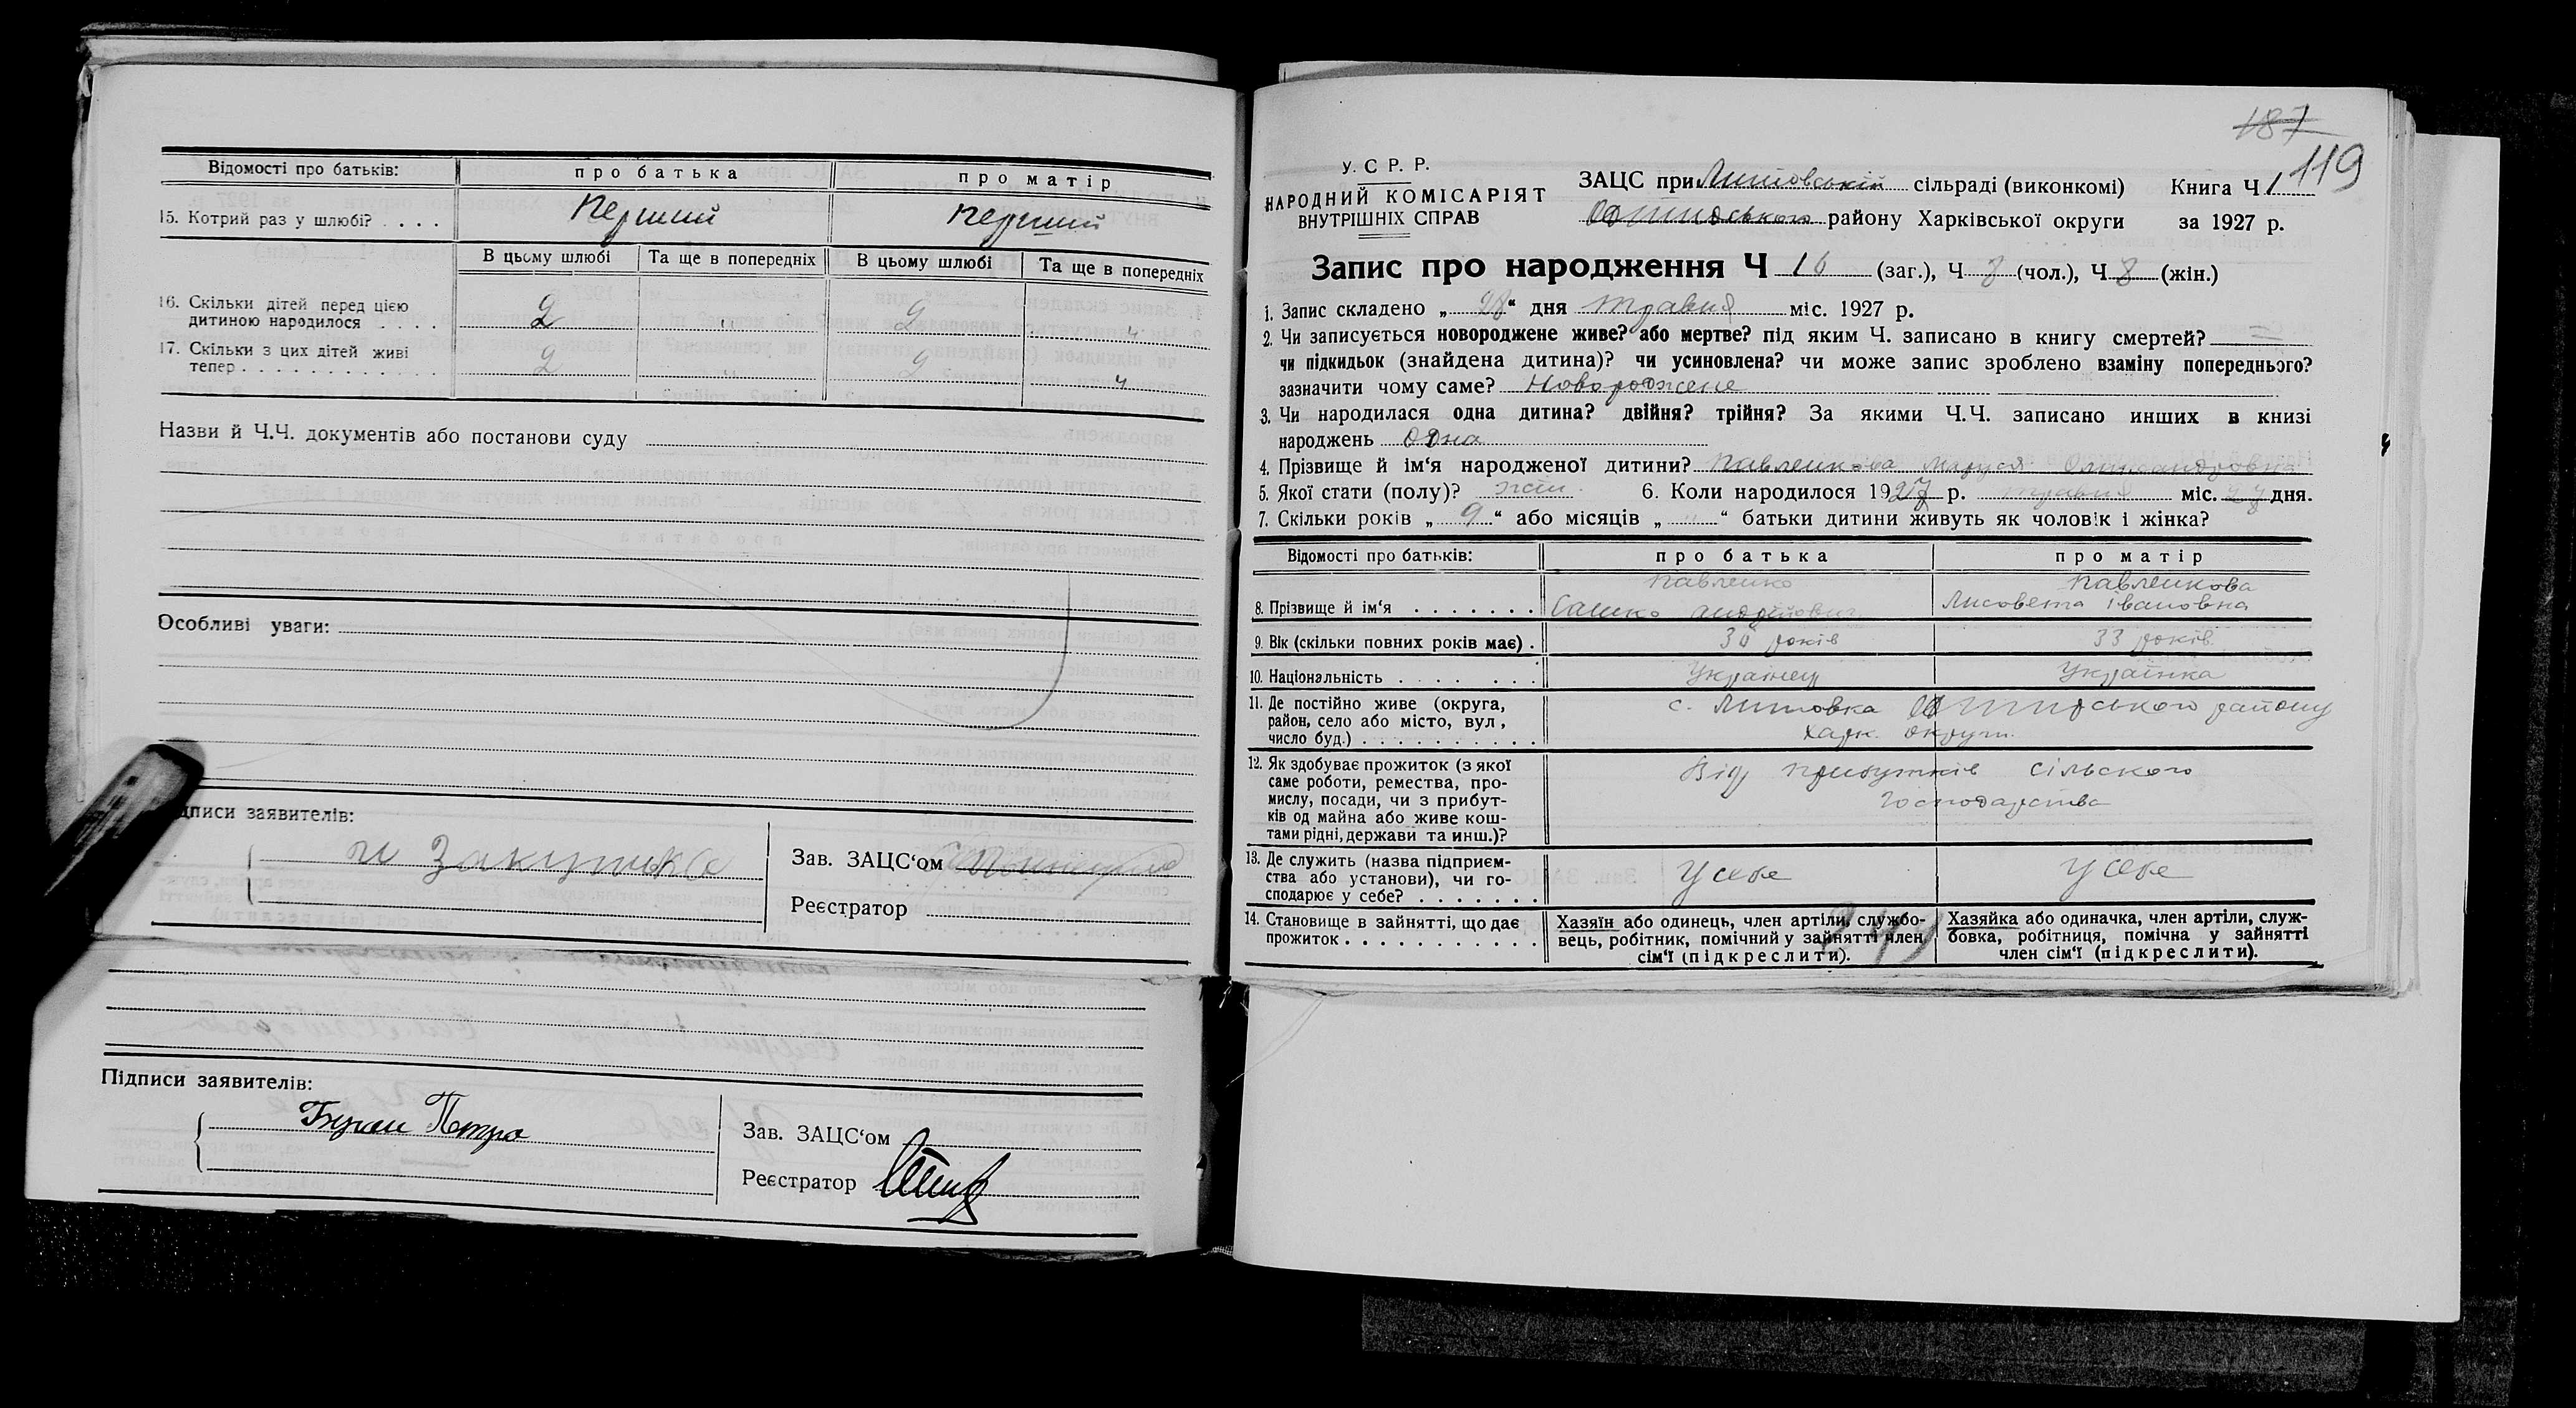 Відомості про батьків: про батька про матір
15. Котрий раз у шлюбі? . . . . Перший Перший
В цьому шлюбі Та ще в попередніх В цьому шлюбі Та ще в попередніх
16. Скільки дітей перед цією
дитиною народилося . . . . 2 " 2 "
17. Скільки з цих дітей живі
тепер . . . . . . . . . . . . 2 " 2 "
Назви й Ч.Ч. документів або постанови суду
Особливі уваги:
дписи заявителів:
Зав. ЗАЦС‘ом
Реєстратор
Підписи заявителів:
Петро
Зав. ЗАЦС‘ом
Реєстратор
187
119
У. С. Р. Р.
НАРОДНИЙ КОМІСАРІЯТ
ВНУТРІШНІХ СПРАВ
ЗАЦС при Литовській сільраді (виконкомі) Книга Ч 1
району Харківської округи за 1927 р.
Запис про народження Ч 16 (заг.), Ч 8 (чол.), Ч 8 (жін.)
1. Запис складено „ 28 “ дня травня міс. 1927 р.
2. Чи записується новороджене живе? або мертве? під яким Ч. записано в книгу смертей? =
чи підкидьок (знайдена дитина)? чи усиновлена? чи може запис зроблено взаміну попереднього?
зазначити чому саме? Новорожене
3. Чи народилася одна дитина? двійня? трійня? За якими Ч.Ч. записано инших в книзі
народжень одна
4. Прізвище й ім‘я народженої дитини? Павленкова Маруся Олександровна
5. Якої стати (полу)? жін. 6. Коли народилося 1927 р. травня міс. 27 дня.
7. Скільки років „ 9 “ або місяців „ " “ батьки дитини живуть як чоловік і жінка?
Відомості про батьків: про батька про матір
Павленко Павленкова
8. Прізвище й ім‘я . . . . . . . Сашко Андрійович Лисовета Івановна
9. Вік (скільки повних років має) . 30 років 33 років
10. Національність . . . . . . . Українец Українка
11. Де постійно живе (округа,
район, село або місто, вул., с. Литовка району
число буд.) . . . . . . . . . . Харк. округи
12. Як здобуває прожиток (з якої
саме роботи, ремества, про- Від прибутків сільского
мислу, посади, чи з прибут- господарства
ків од майна або живе кош-
тами рідні, держави та инш.)?
13. Де служить (назва підприєм-
ства або установи), чи го- У себе У себе
сподарює у себе? . . . . . . .
14. Становище в зайнятті, що дає Хазяїн або одинець, член артіли, службо- Хазяйка або одиначка, член артіли, служ-
прожиток . . . . . . . . . . . вець, робітник, помічний у зайнятті член бовка, робітниця, помічна у зайнятті
сім‘ї (підкреслити). член сім‘ї (підкреслити).